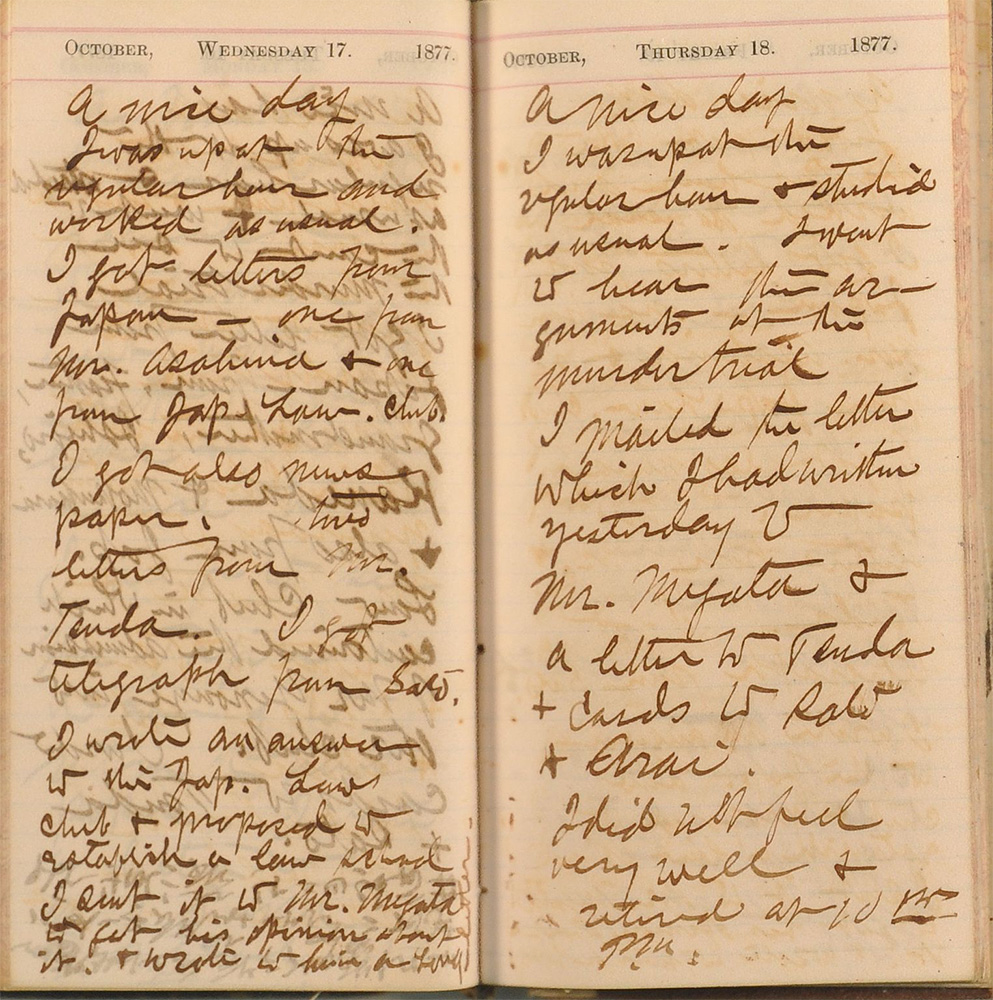 October, Wednesday 17. 1877.
A nice day
I was up at the
regular hour and
worked as usual.
I got letters from
Japan — one from
Mr. Asahina + one
from Jap. Law. Club.
I got also news
paper. two
letters from Mr.
Tenda. I got
telegraph from Sato.
I wrote an answer
to the Jap. Law
club + proposed to
establish a law school
I sent it to Mr. Megata
to get his opinion about
it. + wrote to him a long
letter
October, Thursday 18. 1877.
A nice day
I was up at the
regular hour + studied
as usual. I went
to hear the ar-
guments at the
murder trial
I mailed the letter
which I had written
yesterday to
Mr. Megata &
a letter to Tenda
+ cards to Sato
+ Arai.
I did not feel
very well &
retired at 10
P.m.